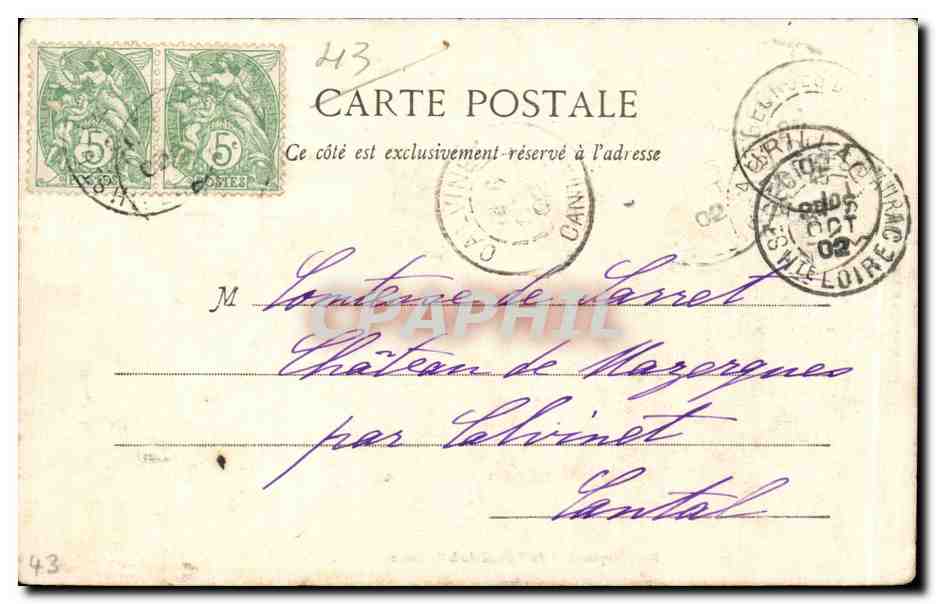 43
5c
5c
POSTES
CARTE POSTALE
Ce côté est exclusivement réservé à l'adresse
CALVINET
CANTAL
AURILLAC
02
OCT
02
HTE LOIRE
M Comtesse de Sarret
CPAPHIL
Château de Mazergues
par Calvinet
Cantal
43